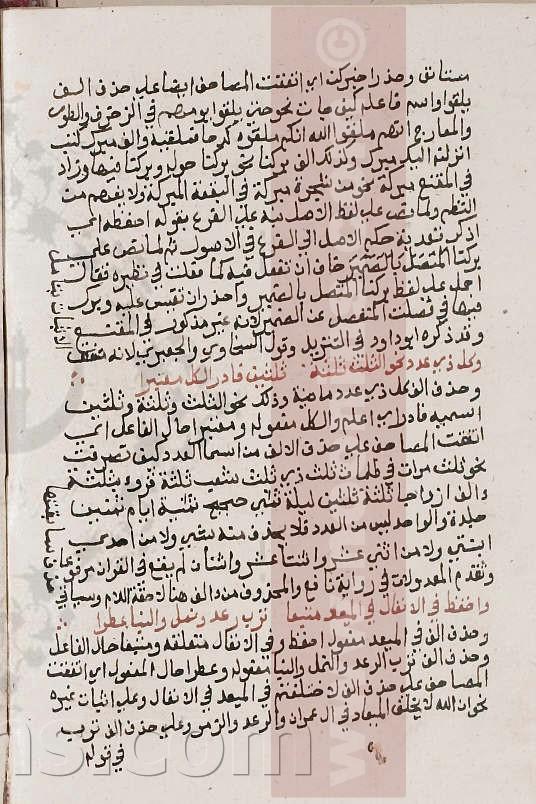 وحذرا خبركت اي اتفقت المصاحف ايضا على حذف الف
يلقوا واسم فاعله كيف جات نحو حتى يلقوا يومهم في الزخرف والطور
والمعارج انهم ملقوا الله انكم ملقوه كرها فملقيه والف مبرك كتب
انزلنه اليك مبرك وكذلك الف بركنا نحو بركنا حوله وبركنا فيها وزاد
في المقنع مبركة نحو من شجرة مبركة في البقعة المبركة ولا يفهم من
النظم ولما نص على لفظ الاصل نبه على الفرع بقوله احفظه اي
اذكر تعدية حكم الاصل الى الفرع في الاصول ثم لما نص على
بركنا المتصل بالضمير خاف ان تغفل فيه كما فعلت في نظيره فقال
احمل على لفظ بركنا المتصل بالضمير واحذر ان تقيس عليه وبرك
فيها في فصلت المنفصل عن الضمير لانه غير مذكور في المقنع
وقد ذكره ابو داود في التنزيل وقول السخاوي والجعبري لانه متفق
وكل ذي عدد نحو الثلث ثلثة ثلثين فادر الكل معتبرا
وحذف الف كل ذي عدد ماضية وذلك نحو الثلث وثلثة وثلثين
اسمية فادر اي اعلم والكل مفعوله ومعتبرا حال الفاعل اي
اتفقت المصاحف على حذف الالف من اسما العدد كيف تصرفت
نحو ثلث مرات في ظلمات ثلث ذي ثلث شعب ثلثة قروء بثلثة
والف ازواجا ثلثة ثلثين ليلة ثمني حجج ثمنية ايام ثمنين
جلدة والواحد ليس من العدد فلا يحذف منه مثنى ولا من احدى
ابنتي ولا من اثني عشر واثنتا عشر واثنان لم يقع في القران مرفوعا
وتقدم المعدولات في رواية نافع والمحذوف منه والف هنا لاحقة اللام وسياتي
واحفظ في الانفال في الميعد متبعا ترب رعد ونمل والنبا عطرا
وحذف الف في الميعد مفعول احفظ وفي الانفال متعلقه ومتبعا حال الفاعل
وحذف الف ترب الرعد والنمل والنبا مفعوله وعطرا حال المفعول اي اتفقت
المصاحف على حذف الف لاختلفتم في الميعد في الانفال وعلى اثبات غيره
نحو ان الله لا يخلف الميعاد في ال عمران والرعد والزمر وعلى حذف الف ترب
في قوله